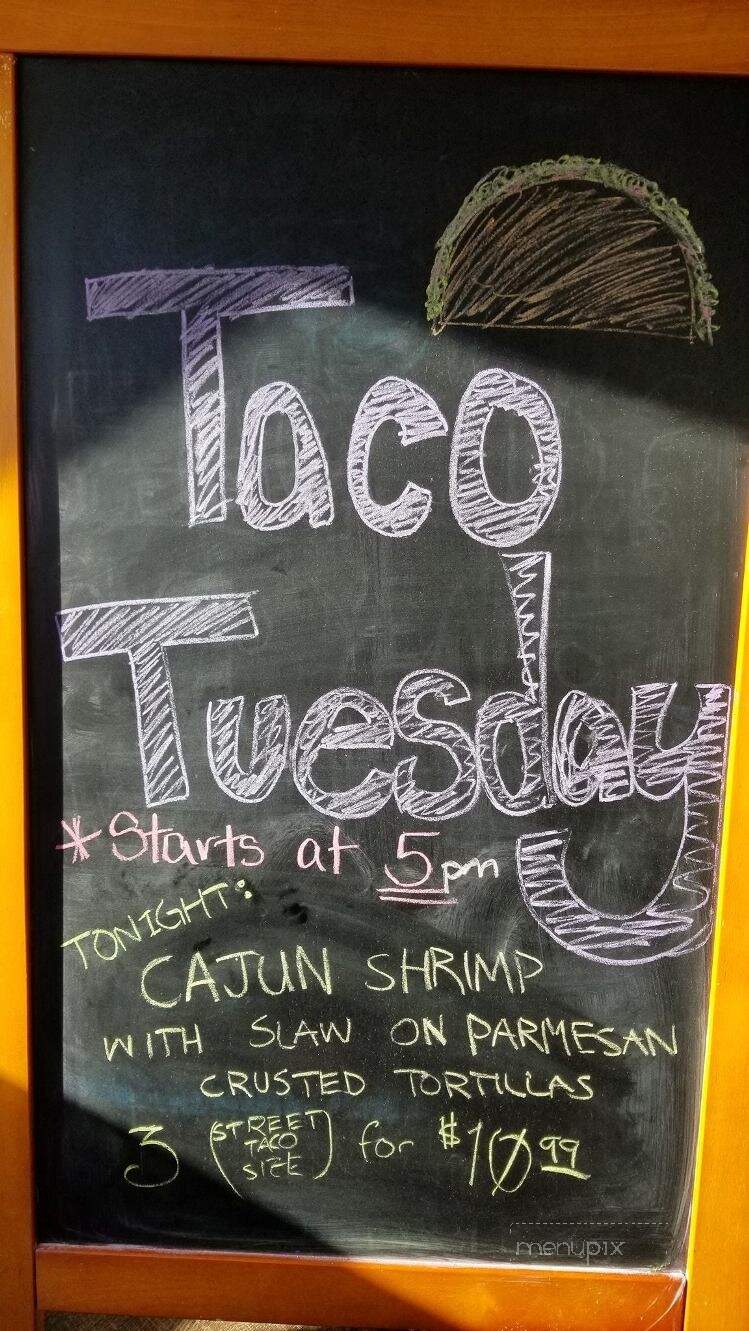 Taco
Tuesday
*Starts at 5pm
TONIGHT:
CAJUN SHRIMP
WITH SLAW ON PARMESAN
CRUSTED TORTILLAS
3 (STREET TACO SIZE) for $10 99
menupix